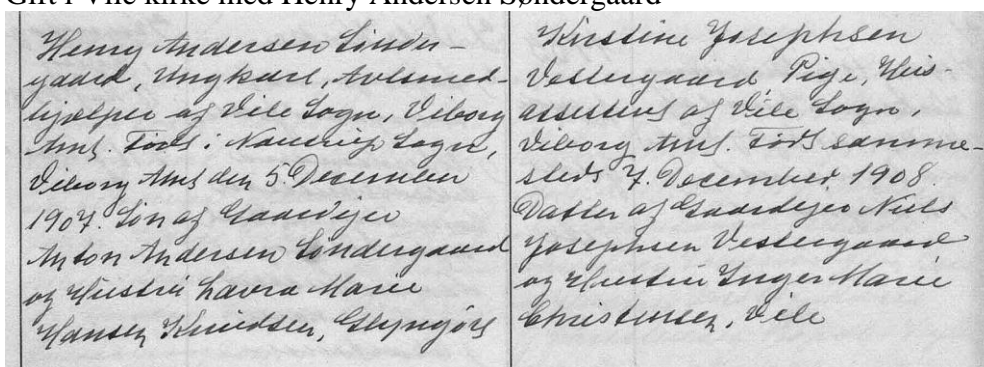 Gift i Vile kirke med Henry Andersen Søndergaard
Henry Andersen Sønder-
gaard, Ungkarl, Avlsmed-
hjælper af Vile Sogn, Viborg
Amt. Født i Nautrup Sogn,
Viborg Amt den 5. December
1907. Søn af Gaardejer
Anton Andersen Søndergaard
og Hustru Laura Marie
Hansen Knudsen, Glyngøre
Kirstine Josephsen
Vestergaard Pige, Hus-
assistent af Vile Sogn,
Viborg Amt. Født samme-
steds 7. December 1908.
Datter af Gaardejer Niels
Josephsen Vestergaard
og Hustru Inger Marie
Christensen, Vile